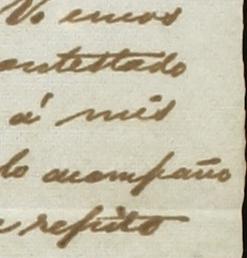 Vo emos
ontestado
á mis
lo acompaño
repito